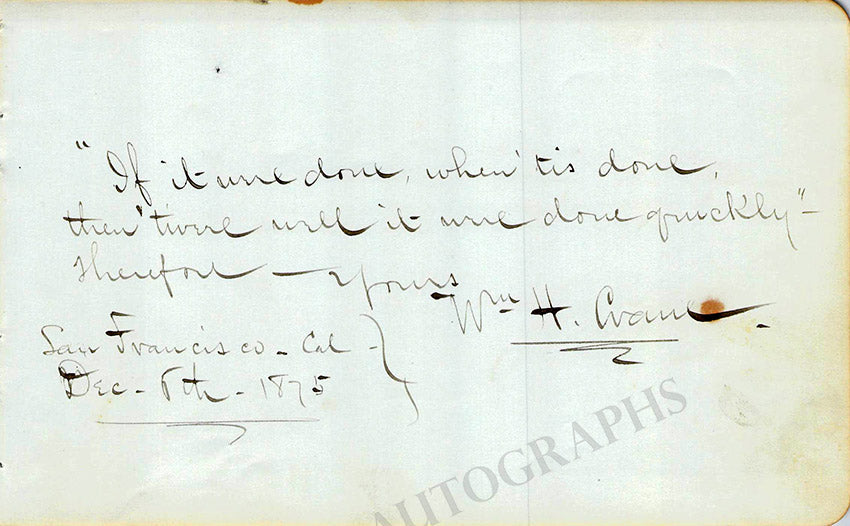 "If it were done, when 'tis done,
then 'twere well it were done quickly" –
therefore – Yours
Wm H. Crane.
San Francisco – Cal
Dec – 6th – 1875
AUTOGRAPHS